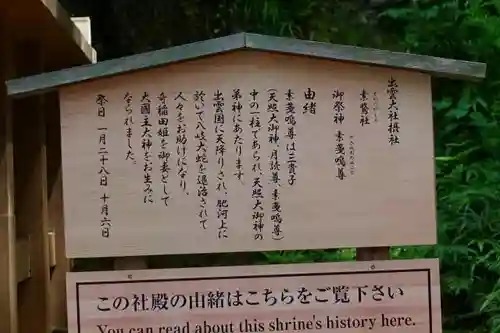 出雲大社摂社
素鵞社
御祭神 素戔嗚尊
由緒
素戔嗚尊は三貴子
(天照大御神、月読尊、素戔嗚尊)
中の一柱であられ、天照大御神の
弟神にあたります。
出雲国に天降りされ、肥河上に
於いて八岐大蛇を退治されて
人々をお助けになり、
奇稲田姫を御妻として
大國主大神をお生みに
なられました。
祭日 一月二十八日 十月六日
この社殿の由緒はこちらをご覧下さい
You can read about this shrine's history here.